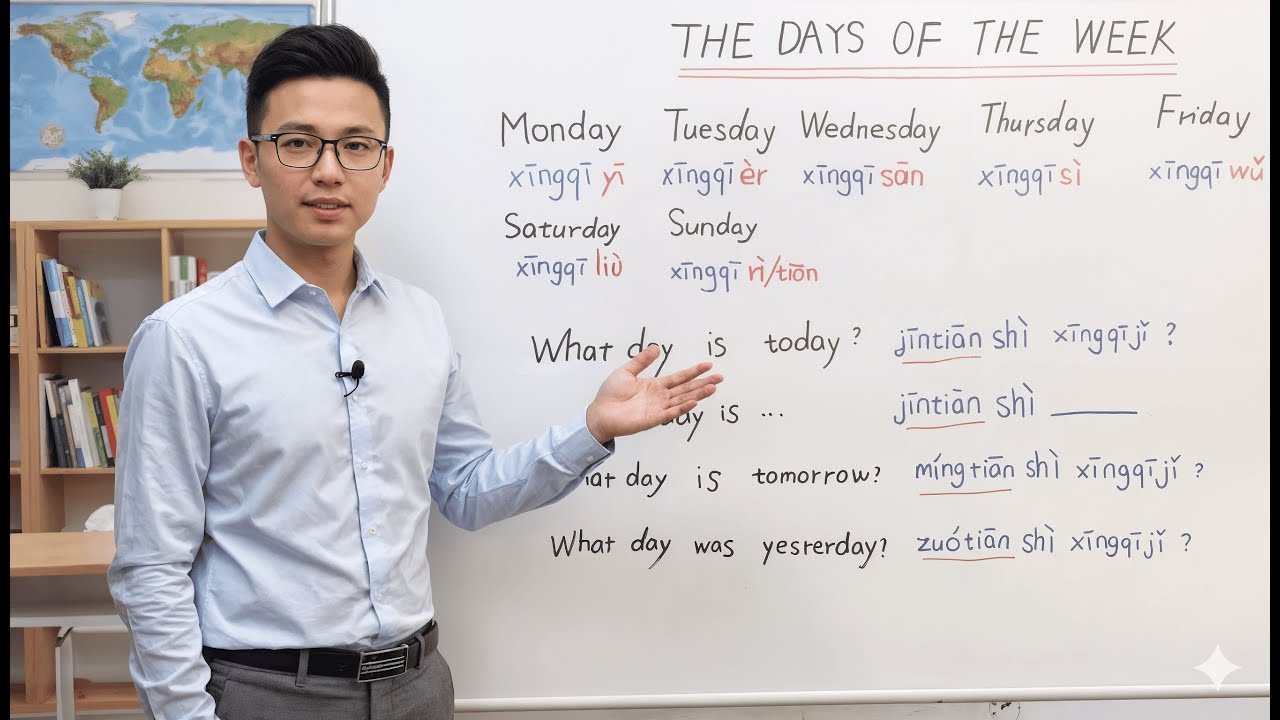 THE DAYS OF THE WEEK
Monday Tuesday Wednesday Thursday Friday
xīngqī yī xīngqī èr xīngqī sān xīngqī sì xīngqī wǔ
Saturday Sunday
xīngqī liù xīngqī rì/tiōn
What day is today? jīntiān shì xīngqījǐ?
is ... jīntiān shì ______
day is tomorrow? míngtiān shì xīngqījǐ?
What day was yesrerday? zuótiān shì xīngqījǐ?